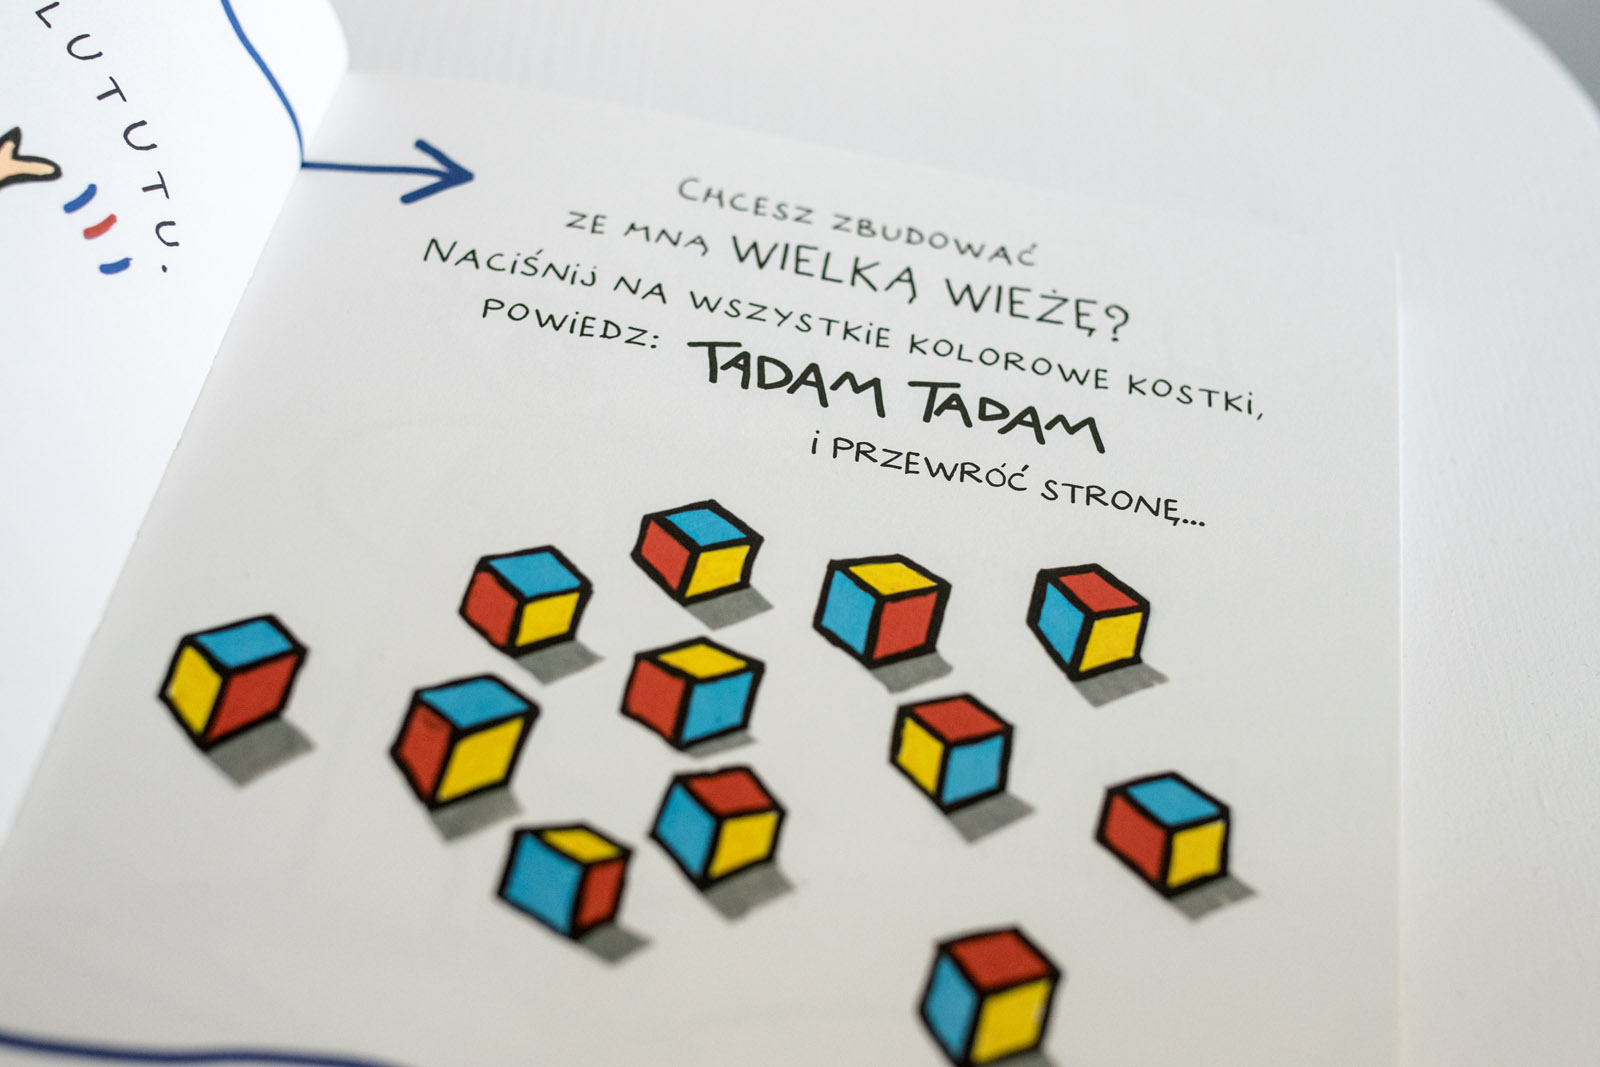 LUTUTUTU.
CHCESZ ZBUDOWAĆ
ZE MNĄ WIELKĄ WIEŻĘ?
NACIŚNIJ NA WSZYSTKIE KOLOROWE KOSTKI,
POWIEDZ: TADAM TADAM
i PRZEWRÓĆ STRONĘ...